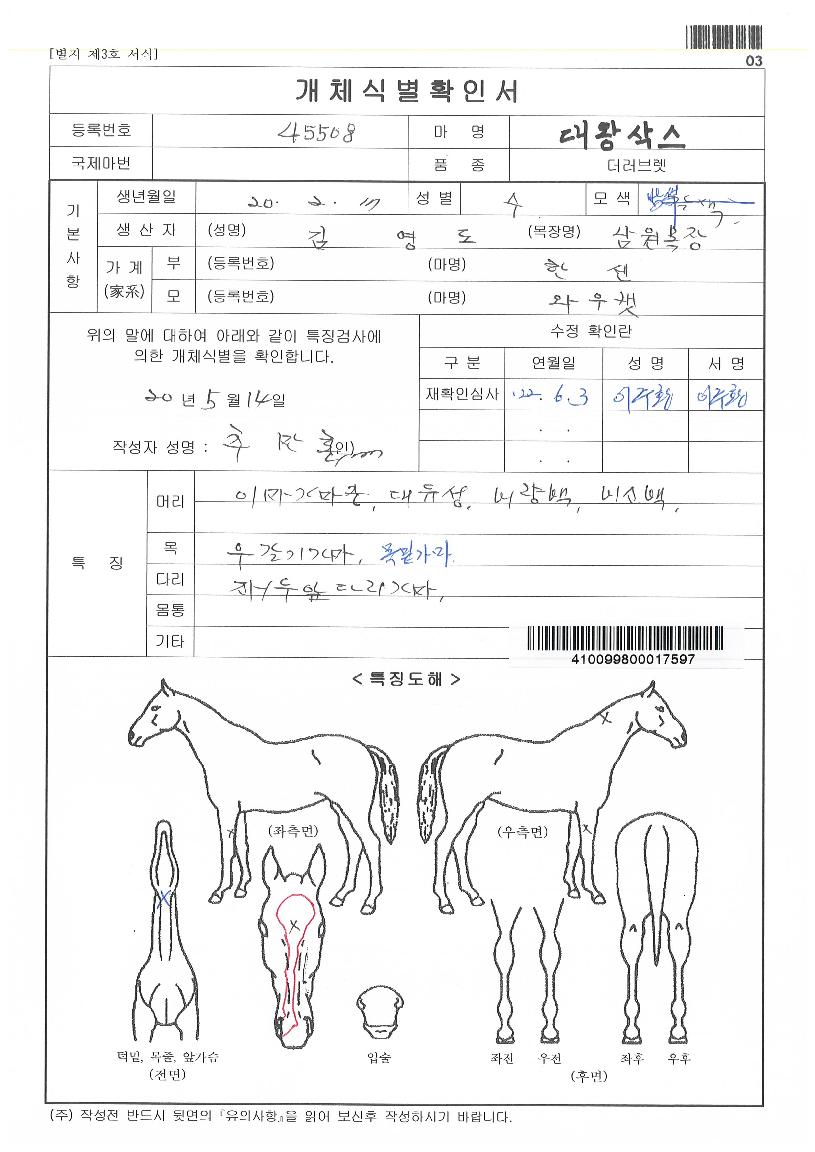 [별지 제3호 서식]
03
개체식별확인서
등록번호 45508 마 명 대왕삭스
국제마번 품 종 더러브렛
기본사항
생년월일 20. 2. 17 성 별 수 모 색
생 산 자 (성명) 김 영 도 (목장명) 삼원목장
가 계 (家系) 부 (등록번호) (마명) 한 센
모 (등록번호) (마명) 와우캣
위의 말에 대하여 아래와 같이 특징검사에
의한 개체식별을 확인합니다.
20 년 5 월 14 일
작성자 성명 : 추 (인)
수정 확인란
구 분 연월일 성 명 서 명
재확인심사 '22. 6. 3
. .
. .
특 징
머리 이마가마존, 대유성, 비량백, 비신백,
목 우갈기가마, 목밑가마.
다리 좌/우앞다리가마,
몸통
기타
410099800017597
< 특징도해 >
(좌측면) (우측면)
턱밑, 목줄, 앞가슴
(전면)
입술
좌전 우전 좌후 우후
(후면)
(주) 작성전 반드시 뒷면의 『유의사항』을 읽어 보신후 작성하시기 바랍니다.